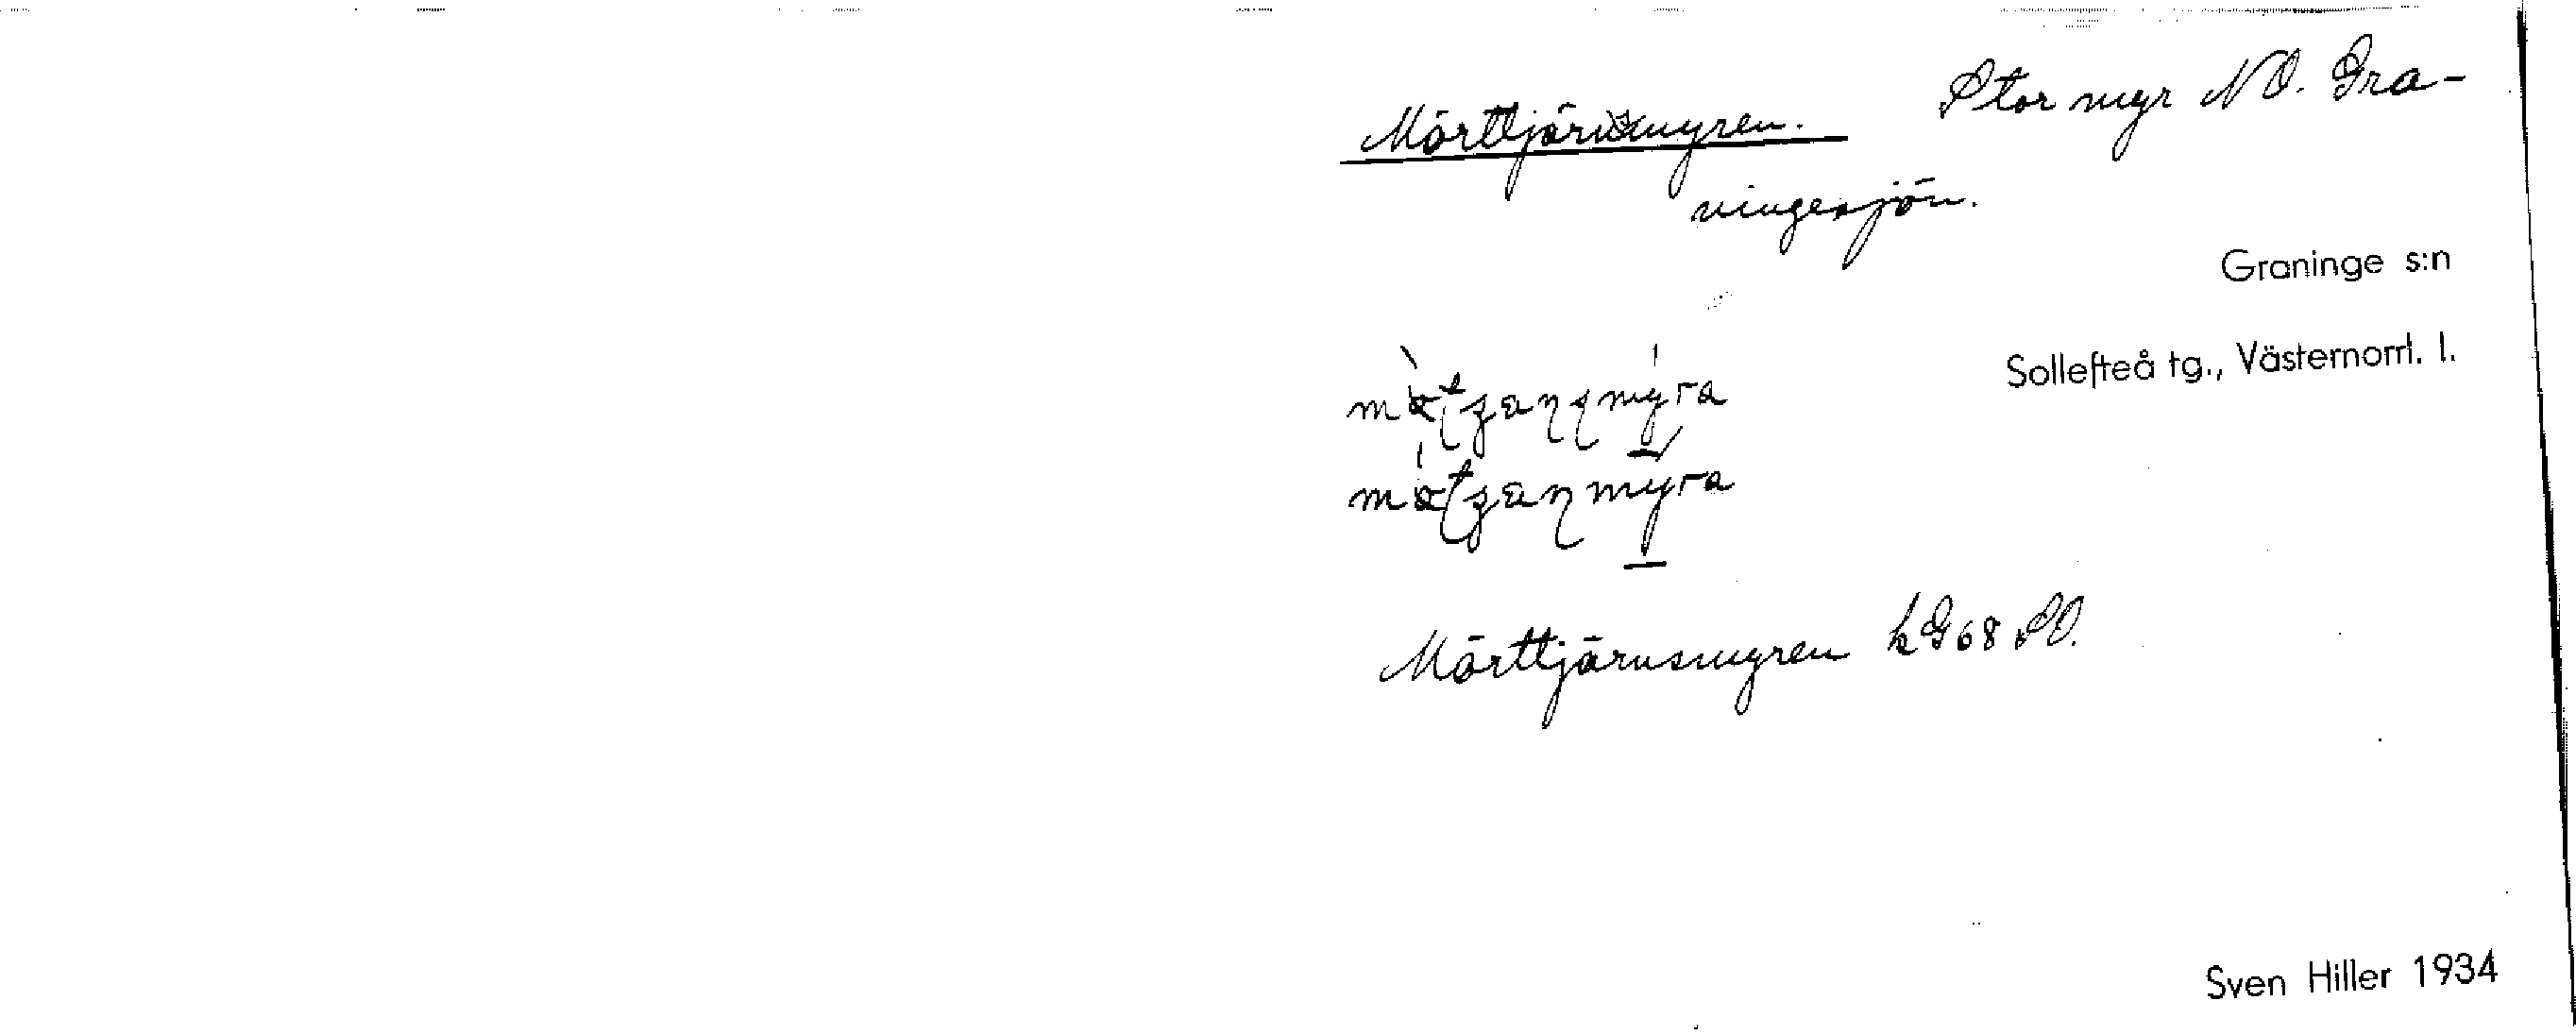 Mörttjärnmyren. Stor myr NO. Gra-
ningesjön.
Graninge s:n
Sollefteå tg., Västernorrl. l.
Mörttjärnsmyren kG68 SO.
Sven Hiller 1934